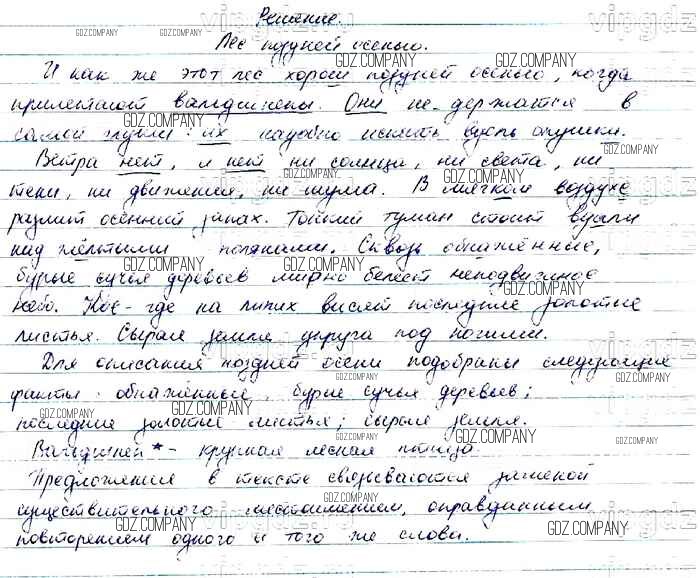 Решение.
Лес поздней осенью.
И как же этот лес хорош поздней осенью, когда
прилетают вальдшнепы. Они не держатся в
самой глуши: их надобно искать вдоль опушки.
Ветра нет, и нет ни солнца, ни света, ни
тени, ни движения, ни шума. В мягком воздухе
разлит осенний запах. Тонкий туман стоит вдали
над жёлтыми полянами. Сквозь обнажённые,
бурые сучья деревьев мирно белеет неподвижное
небо. Кое-где на липах висят последние золотые
листья. Сырая земля упруга под ногами.
Для описания поздней осени подобраны следующие
факты: обнажённые, бурые сучья деревьев;
последние золотые листья; сырая земля.
Вальдшнеп * - крупная лесная птица.
Предложения в тексте связываются заменой
существительного местоимением, оправданным
повторением одного и того же слова.
GDZ.COMPANY
vipgdz